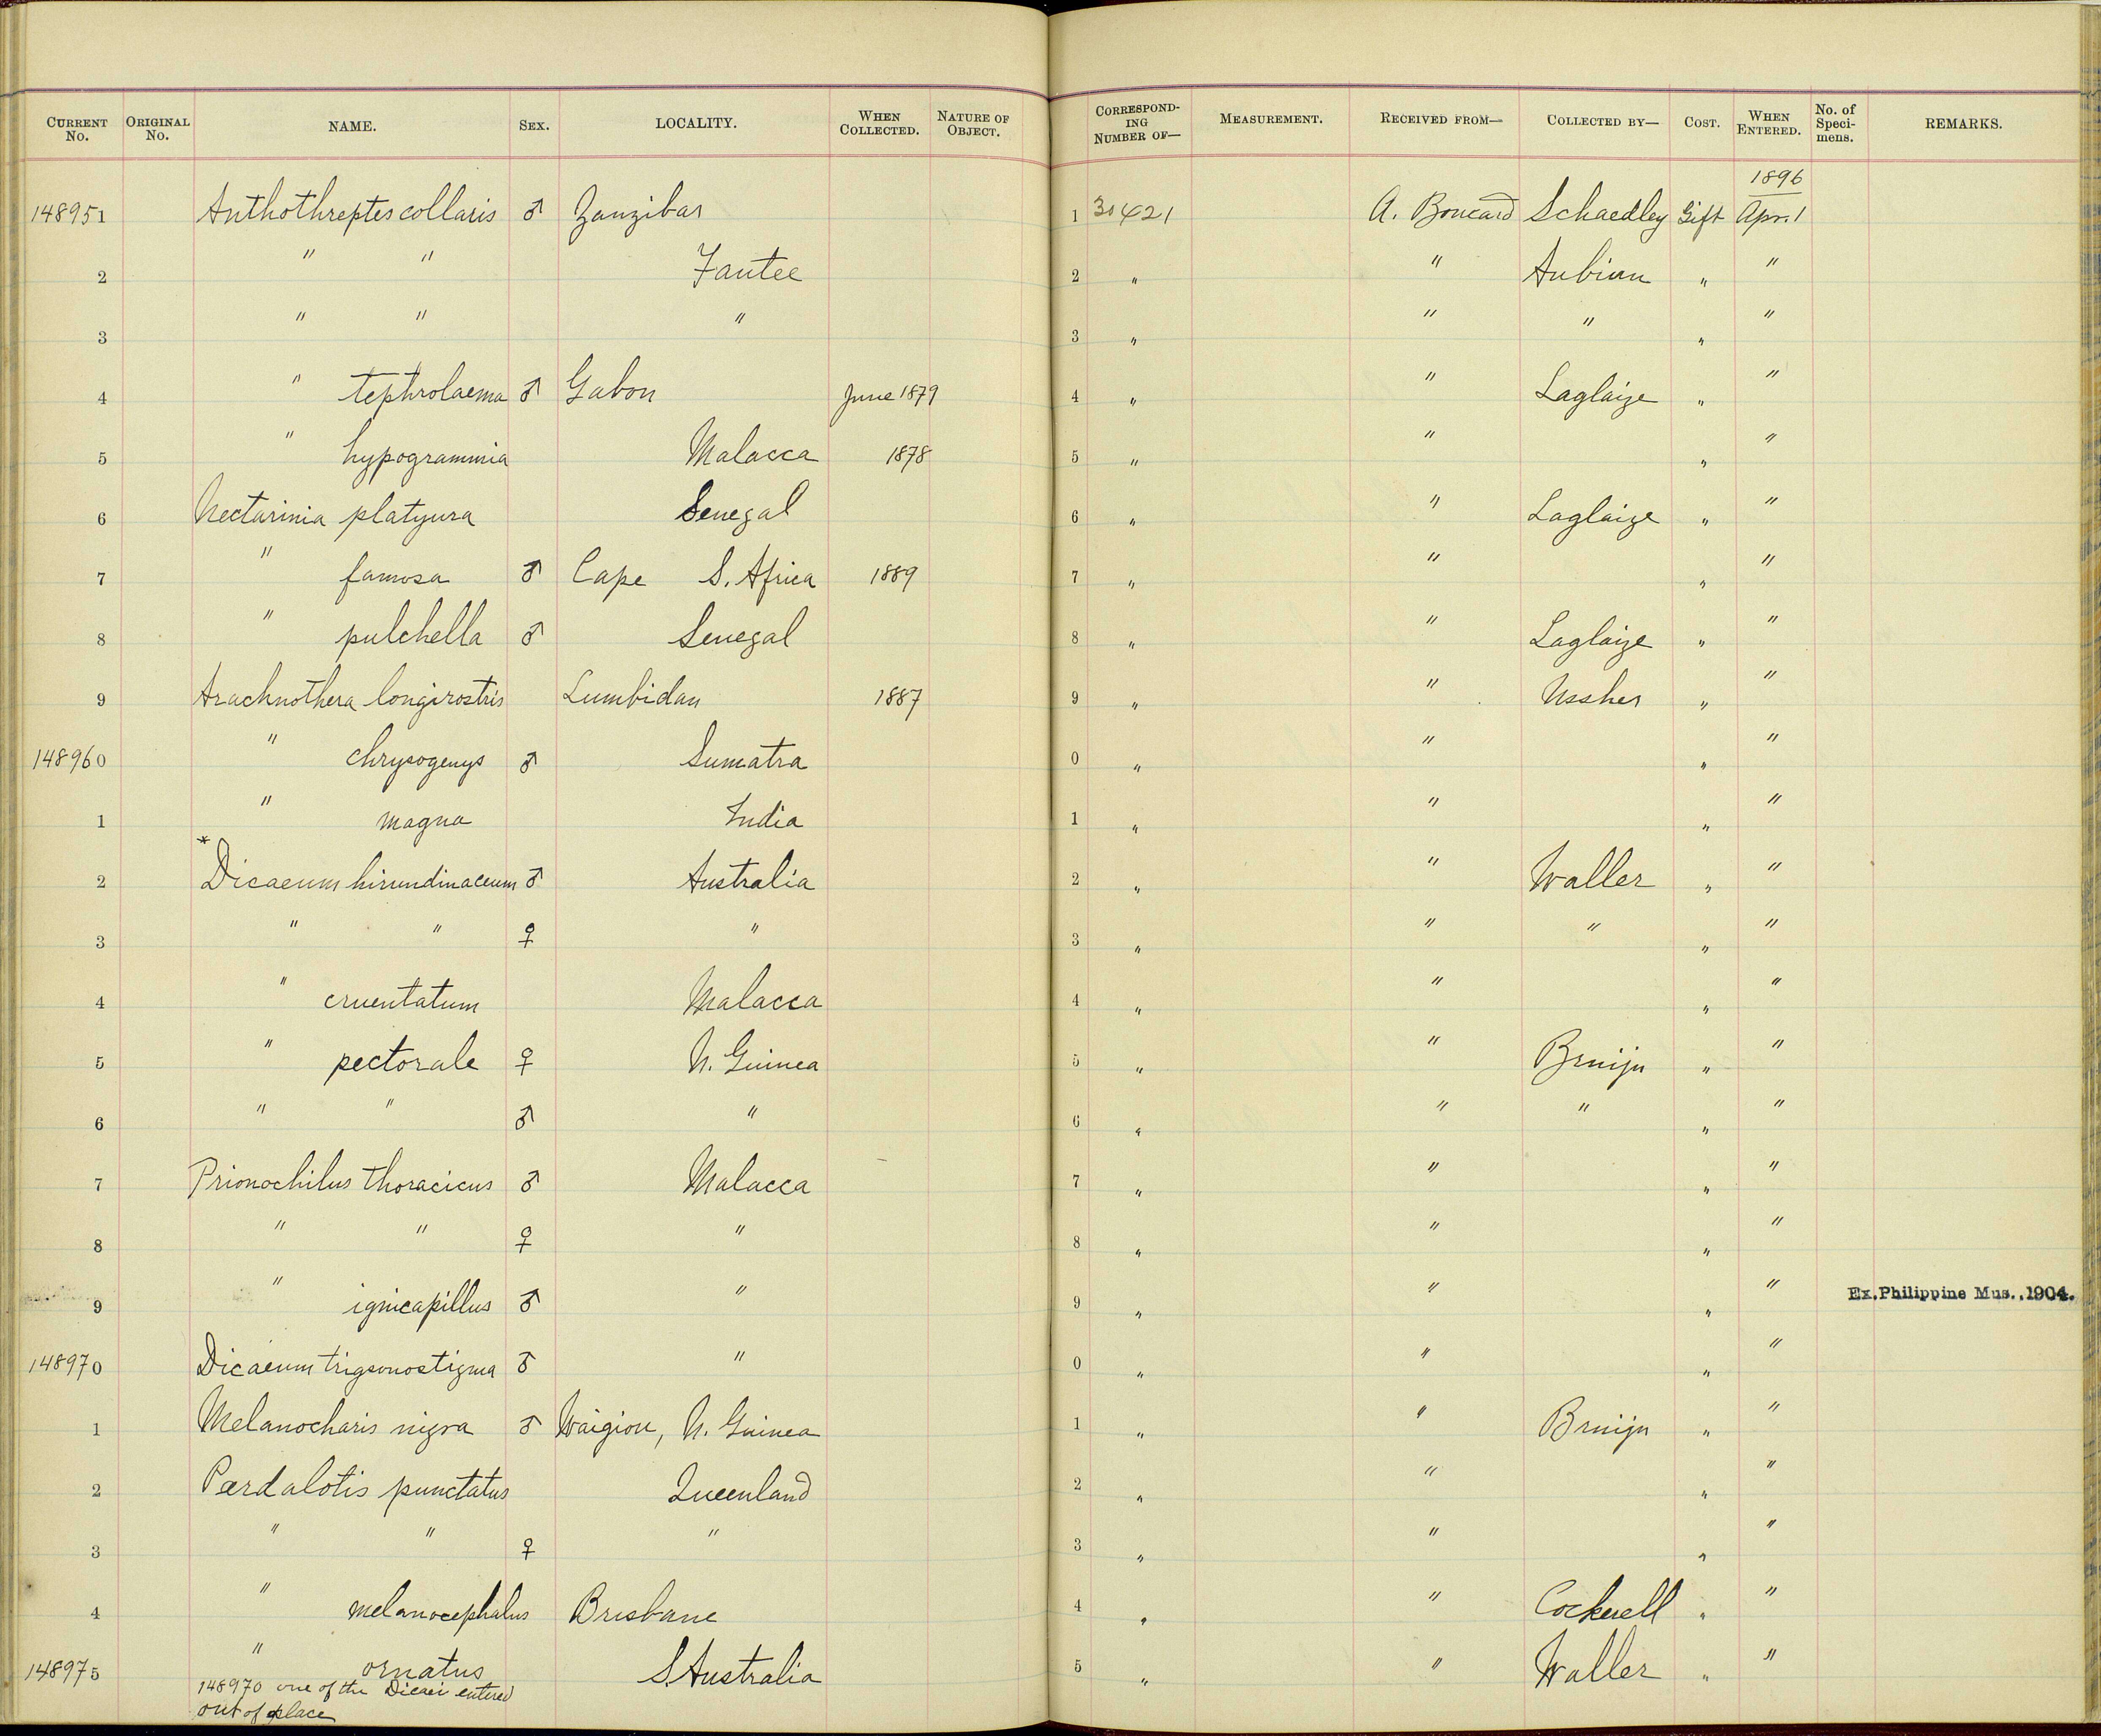 CURRENT No. ORIGINAL No. NAME. SEX. LOCALITY. WHEN COLLECTED. NATURE OF OBJECT. CORRESPONDING NUMBER OF— MEASUREMENT. RECEIVED FROM— COLLECTED BY— COST. WHEN ENTERED. No. of Specimens. REMARKS.
1896
148951 Anthothreptes collaris ♂ Zanzibar 1 30421 A. Boucard Schaedley Gift Apr. 1
2 " " Fantee 2 " " Aubinn " "
3 " " " 3 " " " " "
4 " tephrolaema ♂ Gabon June 1879 4 " " Laglaize " "
5 " hypogrammia Malacca 1878 5 " " " "
6 Nectarinia platyura Senegal 6 " " Laglaize " "
7 " famosa ♂ Cape S. Africa 1889 7 " " " "
8 " pulchella ♂ Senegal 8 " " Laglaize " "
9 Arachnothera longirostris Lumbidan 1887 9 " " Ussher " "
148960 " chrysogenys ♂ Sumatra 0 " " " "
1 " magna India 1 " " " "
2 * Dicaeum hirundinaceum ♂ Australia 2 " " Waller " "
3 " " ♀ " 3 " " " " "
4 " cruentatum Malacca 4 " " " "
5 " pectorale ♀ N. Guinea 5 " " Bruijn " "
6 " " ♂ " 6 " " " " "
7 Prionochilus thoracicus ♂ Malacca 7 " " " "
8 " " ♀ " 8 " " " "
9 " ignicapillus ♂ " 9 " " " " Ex. Philippine Mus., 1904.
148970 Dicaeum trigsonostigma ♂ " 0 " " " "
1 Melanocharis nigra ♂ Waigiou, N. Guinea 1 " " Bruijn " "
2 Pardalotis punctatus Queenland 2 " " " "
3 " " ♀ " 3 " " " "
4 " melanocephalus Brisbane 4 " " Cockerell " "
148975 " ornatus S. Australia 5 " " Waller " "
148970 one of the Dicaei entered
out of place